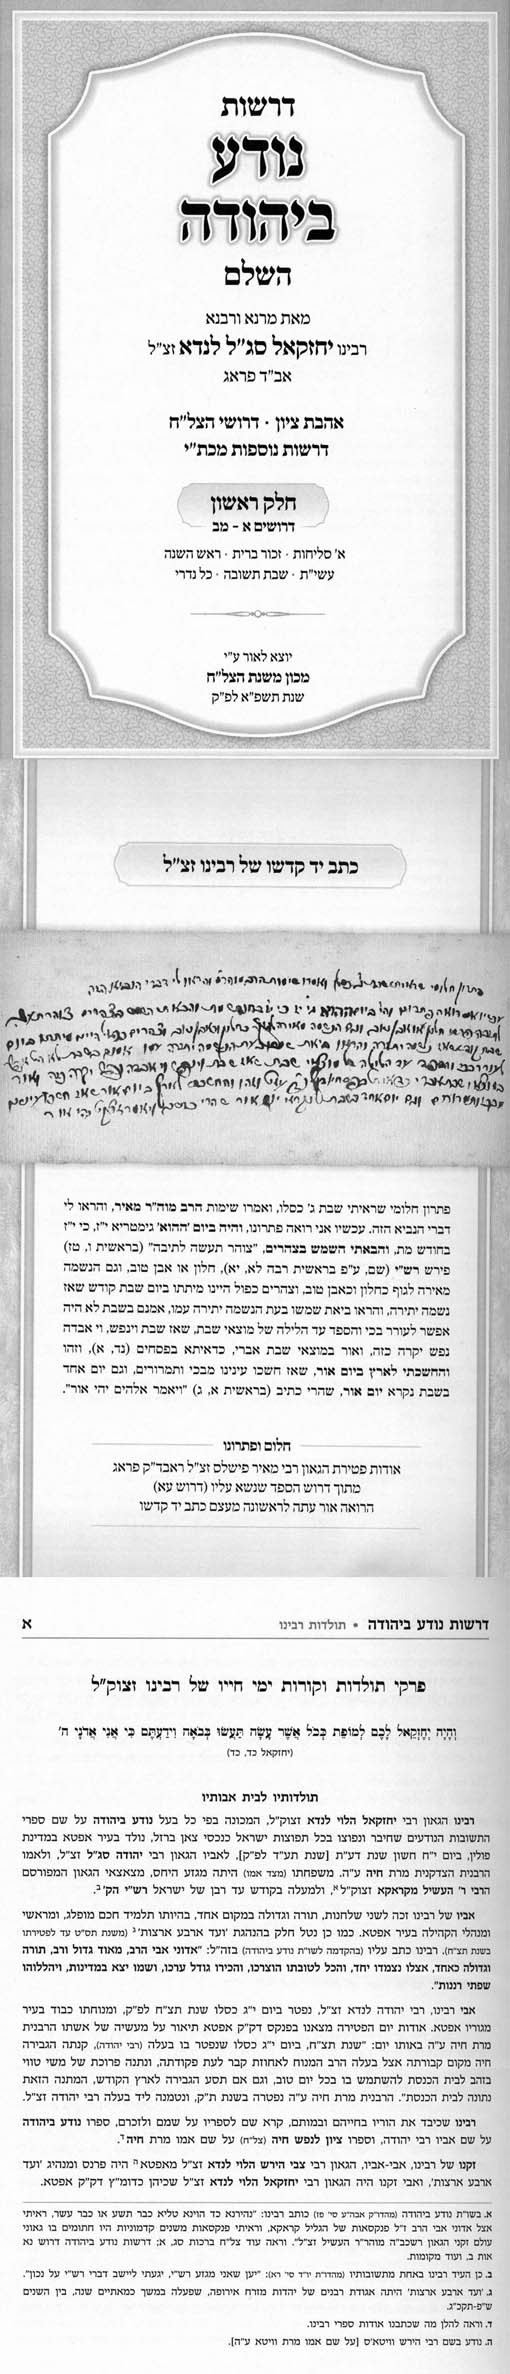 דרשות
נודע
ביהודה
השלם
מאת מרנא ורבנא
רבינו יחזקאל סג"ל לנדא זצ"ל
אב"ד פראג
אהבת ציון · דרושי הצל"ח
דרשות נוספות מכת"י
חלק ראשון
דרושים א - מב
א' סליחות · זכור ברית · ראש השנה
עשי"ת · שבת תשובה · כל נדרי
יוצא לאור ע"י
מכון משנת הצל"ח
שנת תשפ"א לפ"ק
כתב יד קדשו של רבינו זצ"ל
פתרון חלומי שראיתי שבת ג' כסלו, ואמרו שימות הרב מוה"ר מאיר, והראו לי
דברי הנביא הזה. עכשיו אני רואה פתרונו, והיה ביום 'ההוא' גימטריא י"ז, כי י"ז
בחודש מת, והבאתי השמש בצהרים, "צוהר תעשה לתיבה" (בראשית ו, טז)
פירש רש"י (שם, ע"פ בראשית רבה לא, יא), חלון או אבן טוב, וגם הנשמה
מאירה לגוף כחלון וכאבן טוב, וצהרים כפול היינו מיתתו ביום שבת קודש שאז
נשמה יתירה, והראו ביאת שמשו בעת הנשמה יתירה עמו, אמנם בשבת לא היה
אפשר לעורר בכי והספד עד הלילה של מוצאי שבת, שאז שבת וינפש, וי אבדה
נפש יקרה כזה, ואור במוצאי שבת אברי, כדאיתא בפסחים (נד, א), וזהו
והחשכתי לארץ ביום אור, שאז חשכו עינינו מבכי ותמרורים, וגם יום אחד
בשבת נקרא יום אור, שהרי כתיב (בראשית א, ג) "ויאמר אלהים יהי אור".
חלום ופתרונו
אודות פטירת הגאון רבי מאיר פישלס זצ"ל ראבד"ק פראג
מתוך דרוש הספד שנשא עליו (דרוש עא)
הרואה אור עתה לראשונה מעצם כתב יד קדשו
דרשות נודע ביהודה • תולדות רבינו א
פרקי תולדות וקורות ימי חייו של רבינו זצוק"ל
וְהָיָה יְחֶזְקֵאל לָכֶם לְמוֹפֵת כְּכֹל אֲשֶׁר עָשָׂה תַּעֲשׂוּ בְּבֹאָהּ וִידַעְתֶּם כִּי אֲנִי אֲדֹנָי ה'
(יחזקאל כד, כד)
תולדותיו לבית אבותיו
רבינו הגאון רבי יחזקאל הלוי לנדא זצוק"ל, המכונה בפי כל בעל נודע ביהודה על שם ספרי
התשובות הנודעים שחיבר ונפוצו בכל תפוצות ישראל כנכסי צאן ברזל, נולד בעיר אפטא במדינת
פולין, ביום י"ח חשון שנת דע"ת [שנת תע"ד לפ"ק], לאביו הגאון רבי יהודה סג"ל זצ"ל, ולאמו
הרבנית הצדקנית מרת חיה ע"ה. משפחתו (מצד אמו) היתה מגזע היחס, מצאצאי הגאון המפורסם
הרבי ר' העשיל מקראקא זצוק"ל א, ולמעלה בקודש עד רבן של ישראל רש"י הק' ב.
אביו של רבינו זכה לשני שלחנות, תורה וגדולה במקום אחד, בהיותו תלמיד חכם מופלג, ומראשי
ומנהלי הקהילה בעיר אפטא. כמו כן נטל חלק בהנהגת 'ועד ארבע ארצות' ג (משנת תס"ט עד לפטירתו
בשנת תצ"ח). רבינו כתב עליו (בהקדמה לשו"ת נודע ביהודה) בזה"ל: "אדוני אבי הרב, מאוד גדול ורב, תורה
וגדולה כאחד, אצלו נצמדו יחד, והכל לטובתו הוצרכו, והכירו גודל ערכו, ושמו יצא במדינות, ויהללוהו
שפתי רננות".
אבי רבינו, רבי יהודה לנדא זצ"ל, נפטר ביום י"ג כסלו שנת תצ"ח לפ"ק, ומנוחתו כבוד בעיר
מגוריו אפטא. אודות יום הפטירה מצאנו בפנקס דק"ק אפטא תיאור על מעשיה של אשתו הרבנית
מרת חיה ע"ה באותו יום: "שנת תצ"ח, ביום י"ג כסלו שנפטר בו בעלה (רבי יהודה), קנתה הגבירה
חיה מקום קבורתה אצל בעלה הרב המנוח לאחוזת קבר לעת פקודתה, ונתנה פרוכת של משי טווי
בזהב לבית הכנסת להשתמש בו בכל יום טוב, וגם אם תסע הגבירה לארץ הקודש, המתנה הזאת
נתונה לבית הכנסת". הרבנית מרת חיה ע"ה נפטרה בשנת ת"ק, ונטמנה ליד בעלה רבי יהודה זצ"ל.
רבינו שכיבד את הוריו בחייהם ובמותם, קרא שם לספריו על שמם ולזכרם, ספרו נודע ביהודה
על שם אביו רבי יהודה, וספרו ציון לנפש חיה (צל"ח) על שם אמו מרת חיה ד.
זקנו של רבינו, אבי-אביו, הגאון רבי צבי הירש הלוי לנדא זצ"ל מאפטא ה היה פרנס ומנהיג 'ועד
ארבע ארצות', ואבי זקנו היה הגאון רבי יחזקאל הלוי לנדא זצ"ל שכיהן כדומ"ץ דק"ק אפטא.
א. בשו"ת נודע ביהודה (מהדו"ק אבה"ע סי' פז) כותב רבינו: "נהירנא כד הוינא טליא כבר תשע או כבר עשר, ראיתי
אצל אדוני אבי הרב ז"ל פנקסאות של הגליל קראקא, וראיתי פנקסאות משנים קדמוניות היו חתומים בו גאוני
עולם זקני הגאון רשכבה"ג מוהר"ר העשיל זצ"ל". וראה עוד צל"ח ברכות סג, א; דרשות נודע ביהודה דרוש נא
אות ב, ועוד מקומות.
ב. כן העיד רבינו באחת מתשובותיו (מהדו"ת יו"ד סי' רא): "יען שאני מגזע רש"י, יגעתי ליישב דברי רש"י על נכון".
ג. 'ועד ארבע ארצות' היתה אגודת רבנים של יהדות מזרח אירופה, שפעלה במשך כמאתיים שנה, בין השנים
ש"פ-תקכ"ג.
ד. וראה להלן מה שכתבנו אודות ספרי רבינו.
ה. נודע בשם רבי הירש וויטא'ס [על שם אמו מרת וויטא ע"ה].